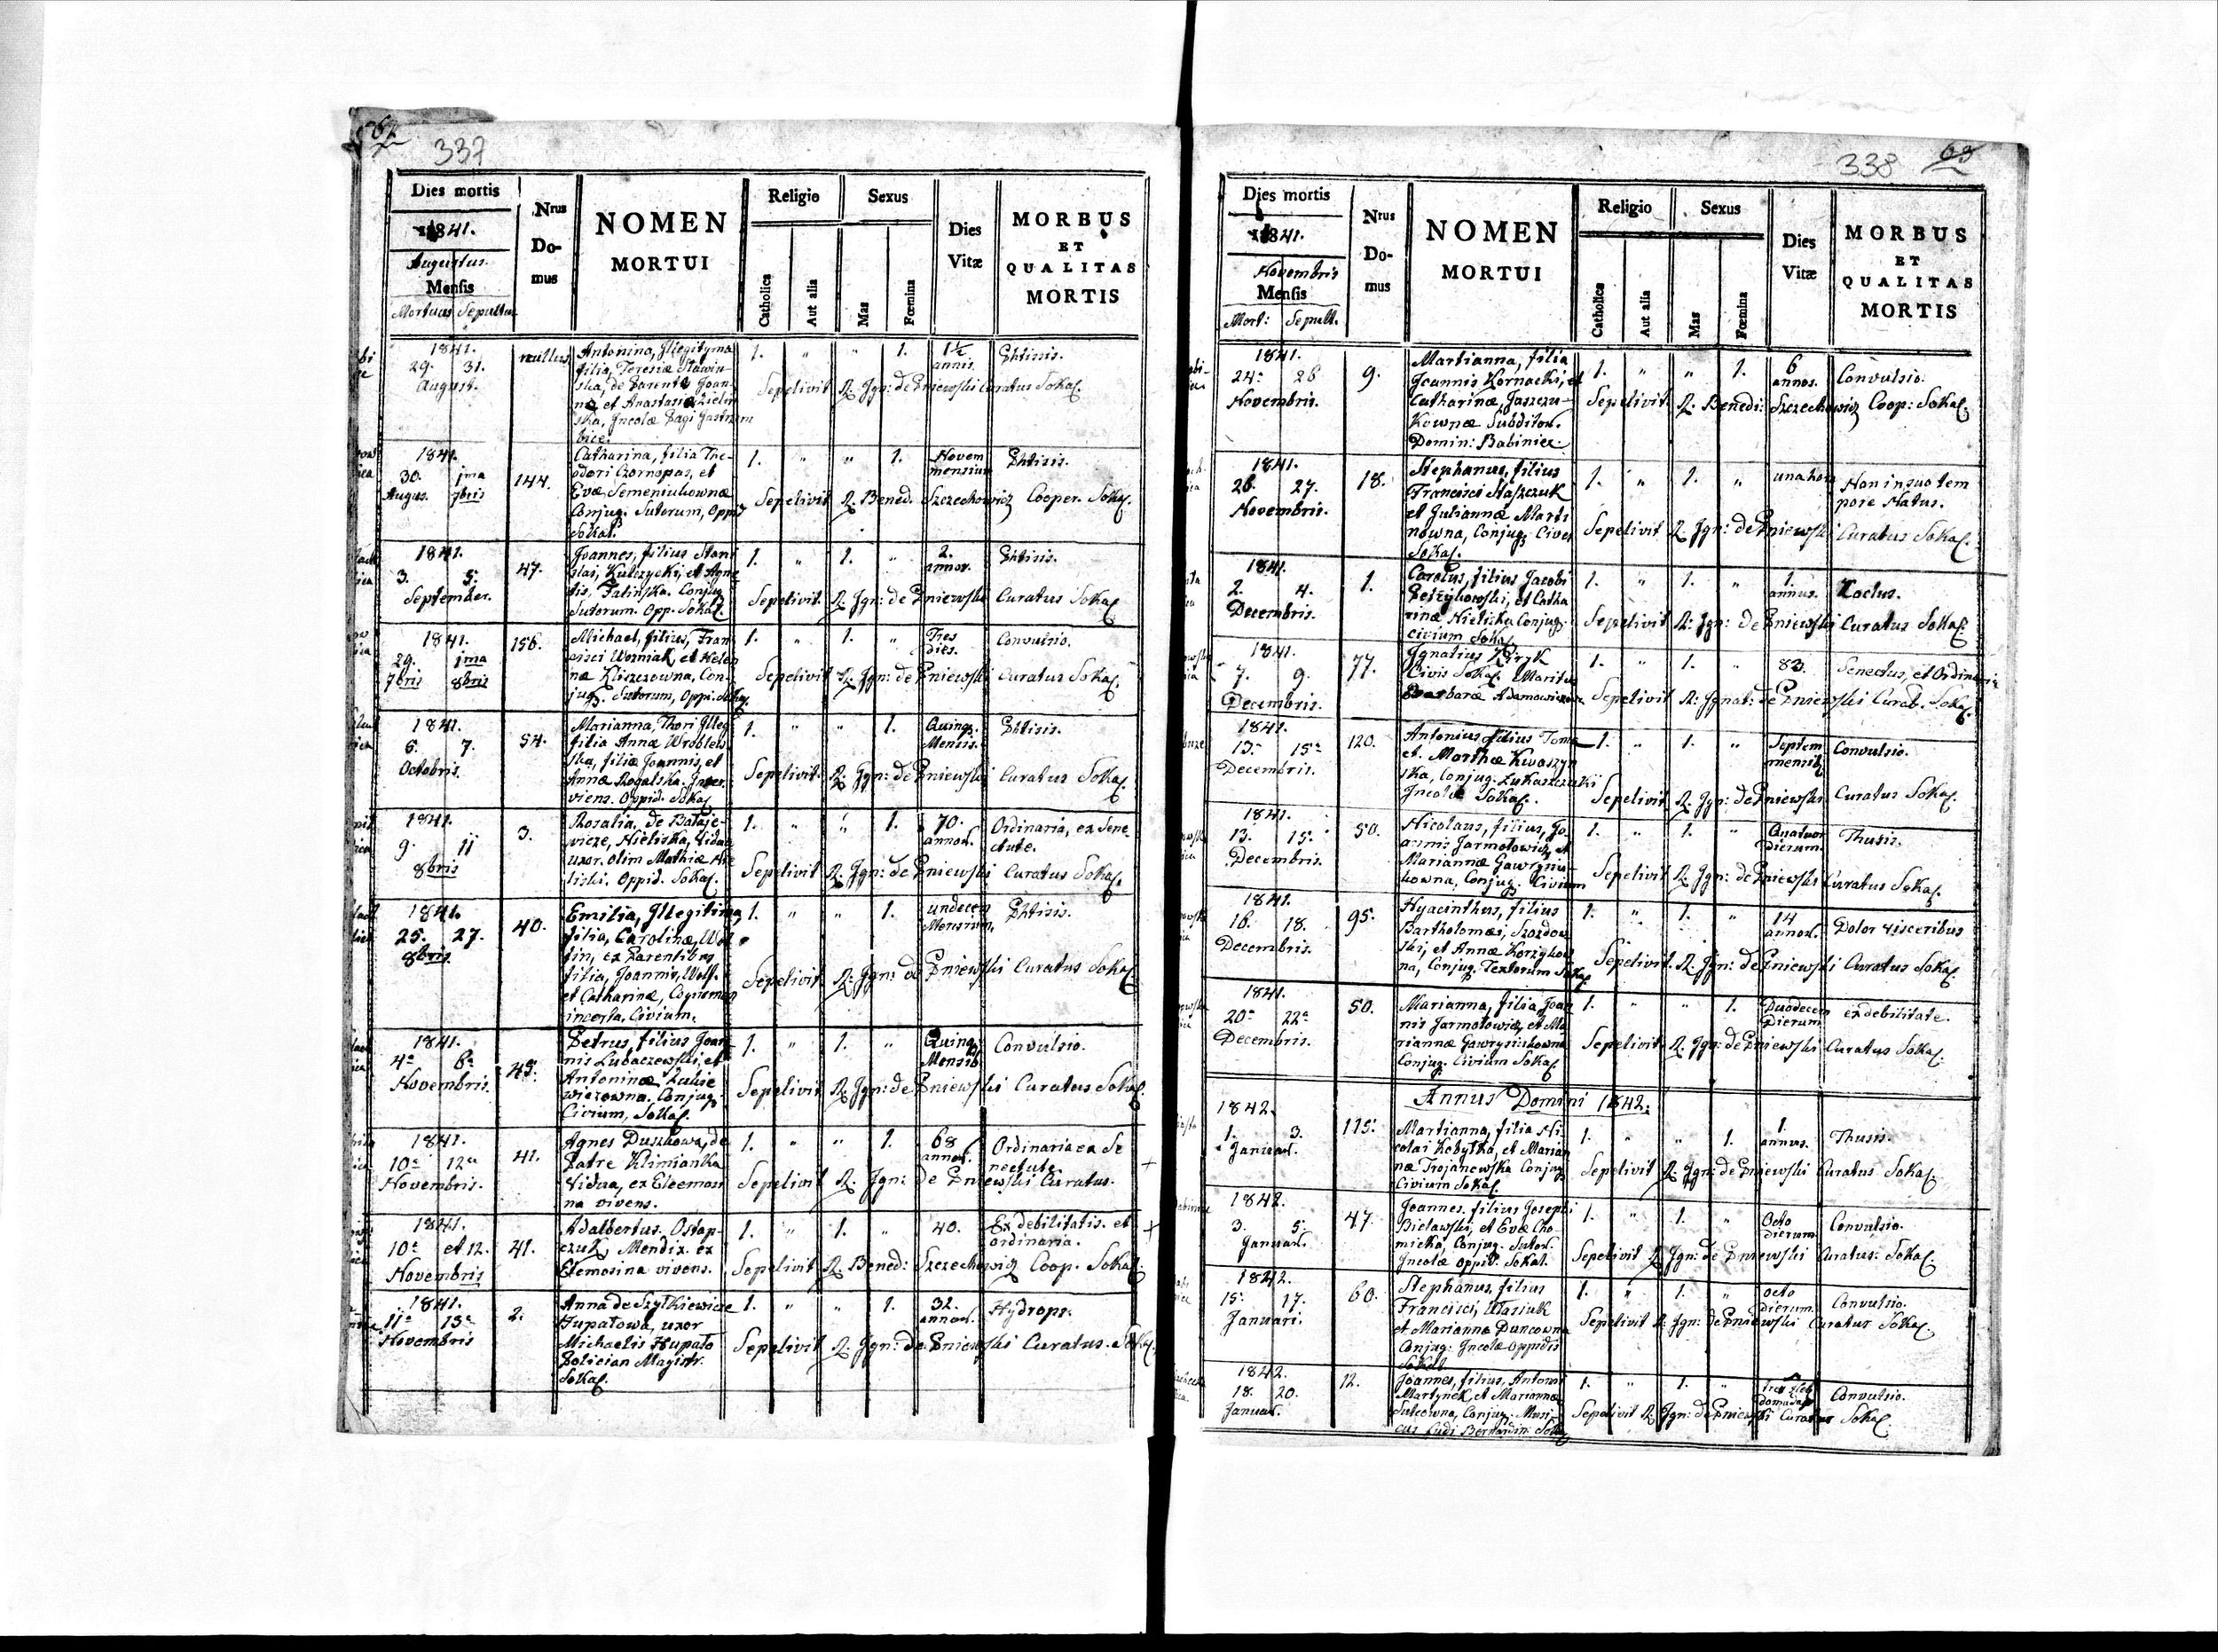 337
Dies mortis
Nrus Do- mus
NOMEN MORTUI
Religio
Sexus
Dies Vitæ
MORBUS ET QUALITAS MORTIS
1841.
Augustus.
Mensis
Mortuus Sepultus
Catholica
Aut alia
Mas
Fœmina
1841.
29. 31.
August.
nullus
Antonina, Illegityma
filia, Teresiæ
ska, de Parente Joan-
næ, et Anastasiæ
ska, Incolæ Pagi Jastrzem
bice.
1. " " 1.
1½ annis.
Phtisis.
Sepelivit R. Ign: de Pniewski Curatus Sokal.
1841.
30. 1ma
Augus. 7bris
144.
Catharina, filia The-
odori Czornopas, et
Evæ Semeniukownæ
Conjug. Sutorum, Oppid
Sokal.
1. " " 1.
Novem mensium
Phtisis.
Sepelivit R. Bened. Szczechowicz Cooper. Sokal.
1841.
3. 5.
September.
47.
Joannes, filius Stani
slai, Kulczycki, et Agne
tis, Falińska. Conjug.
Sutorum. Opp. Sokal.
1. " 1. "
2. annor.
Phtisis.
Sepelivit. R. Ign: de Pniewski Curatus Sokal.
1841.
29. 1ma
7bris 8bris
156.
Michael, filius, Fran
cisci Wozniak, et Hele
næ Kliszczowna, Con-
jug. Sutorum, Oppi. Sokal.
1. " 1. "
Tres dies.
Convulsio.
Sepelivit R. Ign: de Pniewski Curatus Sokal.
1841.
6. 7.
Octobris.
54.
Marianna, Thori Illeg
filia Annæ Wroblew
ska, filiæ Joannis, et
Annæ Rogalska. Inser
viens. Oppid. Sokal.
1. " " 1.
Quinq. Mensis.
Phtisis.
Sepelivit. R. Ign: de Pniewski Curatus Sokal.
1841.
9. 11
8bris
3.
Rosalia, de Bataje-
wicze, Nieliska, Vidua
uxor. olim Mathiæ Nie
liski. Oppid. Sokal.
1. " " 1.
70. annor.
Ordinaria, ex Sene
ctute.
Sepelivit R. Ign: de Pniewski Curatus Sokal.
1841.
25. 27.
8bris
40.
Emilia, Illegitima
filia, Carolinæ, Wol
fin, ex Parentibus
filia, Joannis, Wolf.
et Catharinæ, Cognomen
incerta. Civium.
1. " " 1.
undecem Mensium.
Phtisis.
Sepelivit R. Ign: de Pniewski Curatus Sokal.
1841.
4a 6a
Novembris.
45.
Petrus, filius Joan
nis Lubaczewski, et
Antoninæ
wiczowna. Conjug.
Civium, Sokal.
1. " 1. "
Quinq. Mensib
Convulsio.
Sepelivit R. Ign: de Pniewski Curatus Sokal.
1841.
10a 12a
Novembris.
41.
Agnes Duszkowa, de
Patre Klimianka
Vidua, ex Eleemosi
na vivens.
1. " " 1.
68 annor.
Ordinaria ex Se
nectute.
Sepelivit R. Ign: de Pniewski Curatus.
1841.
10a et 12.
Novembris
41.
Adalbertus. Ostap-
czuk, Mendix. ex
Elemosina vivens.
1. " 1. "
40.
Ex debilitatis. et
ordinaria.
Sepelivit R. Bened: Szczechowicz Coop. Sokal.
1841.
11a 13a
Novembris
2.
Anna de Szytkiewicze
Hupatowa, uxor
Michaelis Hupało
Polician Magistr.
Sokal.
1. " " 1.
32. annor.
Hydrops.
Sepelivit R. Ign: de Pniewski Curatus. Sokal.
338 63
Dies mortis
Nrus Do- mus
NOMEN MORTUI
Religio
Sexus
Dies Vitæ
MORBUS ET QUALITAS MORTIS
1841.
Novembris
Mensis
Mort: Sepult.
Catholica
Aut alia
Mas
Fœmina
1841.
24a 26
Novembris.
9.
Martianna, filia
Joannis Kornacki, et
Catharinæ, Jaszczu-
kownæ Subditor.
Domin: Babiniec.
1. " " 1.
6 annos.
Convulsio.
Sepelivit. R. Benedi: Szczechowicz Coop: Sokal.
1841.
26. 27.
Novembris.
18.
Stephanus, filius
Francisci Staszczuk
et Juliannæ Marti
nowna, Conjug. Cives
Sokal.
1. " 1. "
una hora
Non in suo tem
pore Natus.
Sepelivit R. Ign: de Pniewski Curatus Sokal.
1841.
2. 4.
Decembris.
1.
Carolus, filius Jacobi
et Catha
rinæ Nieliska Conjug.
civium Sokal.
1. " 1. "
1. annus.
Sepelivit R: Ign: de Pniewski Curatus Sokal.
1841.
7. 9.
Decembris.
77.
Ignatius Kiryk
Civis Sokal. Maritus
Barbaræ Adamowiczowa
1. " 1. "
83.
Senectus, et Ordinaria
Sepelivit R: Ignat: de Pniewski Curat. Sokal.
1841.
13a 15a
Decembris.
120.
Antonius filius Toma
et. Marthæ Kwaszyn
ska, Conjug. Łukaszczukij
Incolæ Sokal.
1. " 1. "
Septem mensib
Convulsio.
Sepelivit R. Ign: de Pniewski Curatus Sokal.
1841.
13. 15a
Decembris.
50.
Nicolaus, filius, Jo
annis Jarmołowicz, et
Mariannæ Gawrysiu-
kowna, Conjug. Civium
1. " 1. "
Quatuor Dierum.
Thusis.
Sepelivit R. Ign: de Pniewski Curatus Sokal.
1841.
16. 18.
Decembris.
95.
Hyacinthus, filius
Bartholomæi, Szozdow
ski, et Annæ Korzykow
na, Conjug. Textorum Sokal
1. " 1. "
14 annor.
Dolor visceribus
Sepelivit. R. Ign: de Pniewski Curatus Sokal.
1841.
20a 22a
Decembris.
50.
Marianna, filia Joan
nis Jarmołowicz, et Ma
riannæ Gawrysiukowna
Conjug. Civium Sokal.
1. " " 1.
Duodecem Dierum
ex debilitate.
Sepelivit R. Ign: de Pniewski Curatus Sokal.
Annus Domini 1842.
1842.
1. 3.
Januar.
115.
Martianna, filia Ni
colai Kobyłka, et Marian
næ Trojanowska Conjug.
Civium Sokal.
1. " " 1.
1. annus.
Thusis.
Sepelivit R. Ign: de Pniewski Curatus Sokal.
1842.
3. 5.
Januar.
47.
Joannes. filius Josephi
Bielawski, et Evæ Cho-
micka, Conjug. Sutor.
Incolæ Oppid. Sokal.
1. " 1. "
Octo Dierum
Convulsio.
Sepelivit R. Ign: de Pniewski Curatus: Sokal.
1842.
15. 17.
Januari.
60.
Stephanus, filius
Francisci, Wasiuk
et Marianna Duncowna
Conjug: Incolæ Oppidi
Sokal.
1. " 1. "
octo dierum
Convulsio.
Sepelivit R. Ign: de Pniewski Curatus Sokal.
1842.
18. 20.
Januar.
12.
Joannes, filius, Antonii
Martynek, et Mariannæ
Conjug. Musi-
cus Ludi Bernardin: Sokal
1. " 1. "
Tres Heb domadas
Convulsio.
Sepelivit R. Ign: de Pniewski Curatus Sokal.